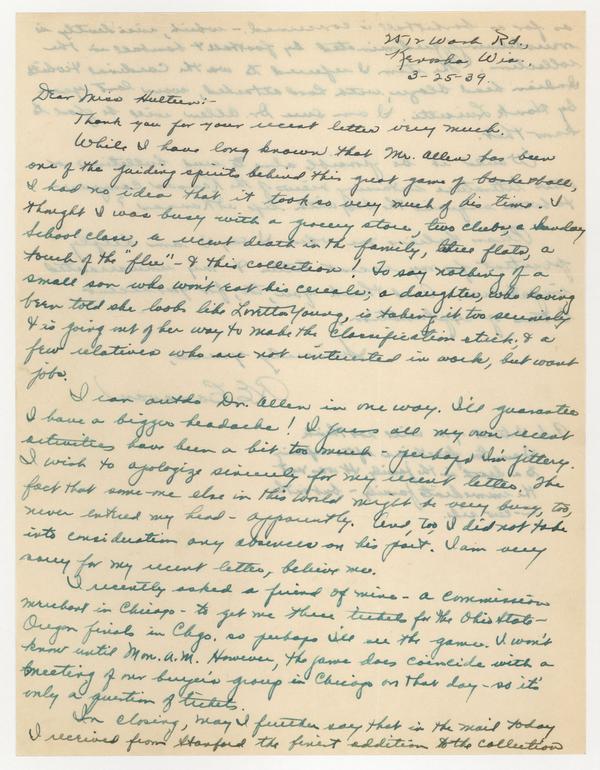 Wash Rd.,
Kenosha, Wis.,
3-25-39.
Dear Miss Hulteen:-
Thank you for your recent letter very much.
While I have long known that Mr. Allen has been
one of the guiding spirits behind this great game of basketball,
I had no idea that it took so very much of his time. I
thought I was busy with a grocery store, two clubs, a Sunday
School class, a recent death in the family, three flats, a
touch of the "flu" - & this collection! To say nothing of a
small son who won't eat his cereals; a daughter, who having
been told she looks like Loretta Young, is taking it too seriously
& is going out of her way to make the classification stick, & a
few relatives who are not interested in work, but want
jobs.
I can outdo Dr. Allen in one way. I'll guarantee
I have a bigger headache! I guess all my own recent
activities have been a bit too much - perhaps I'm jittery.
I wish to apologize sincerely for my recent letter. The
fact that some-one else in this world might be very busy, too,
never entered my head - apparently. And, too I did not take
into consideration any absences on his part. I am very
sorry for my recent letter, believe me.
I recently asked a friend of mine - a commission
merchant in Chicago - to get me three tickets for the Ohio State-
Oregon finals in Chgo. so perhaps I'll see the game. I won't
know until Mon. A.M. However, the game does coincide with a
meeting of our buyers group in Chicago on that day - so it's
only a question of tickets.
In closing, may I further say that in the mail today
I received from Stanford the finest addition to the collection